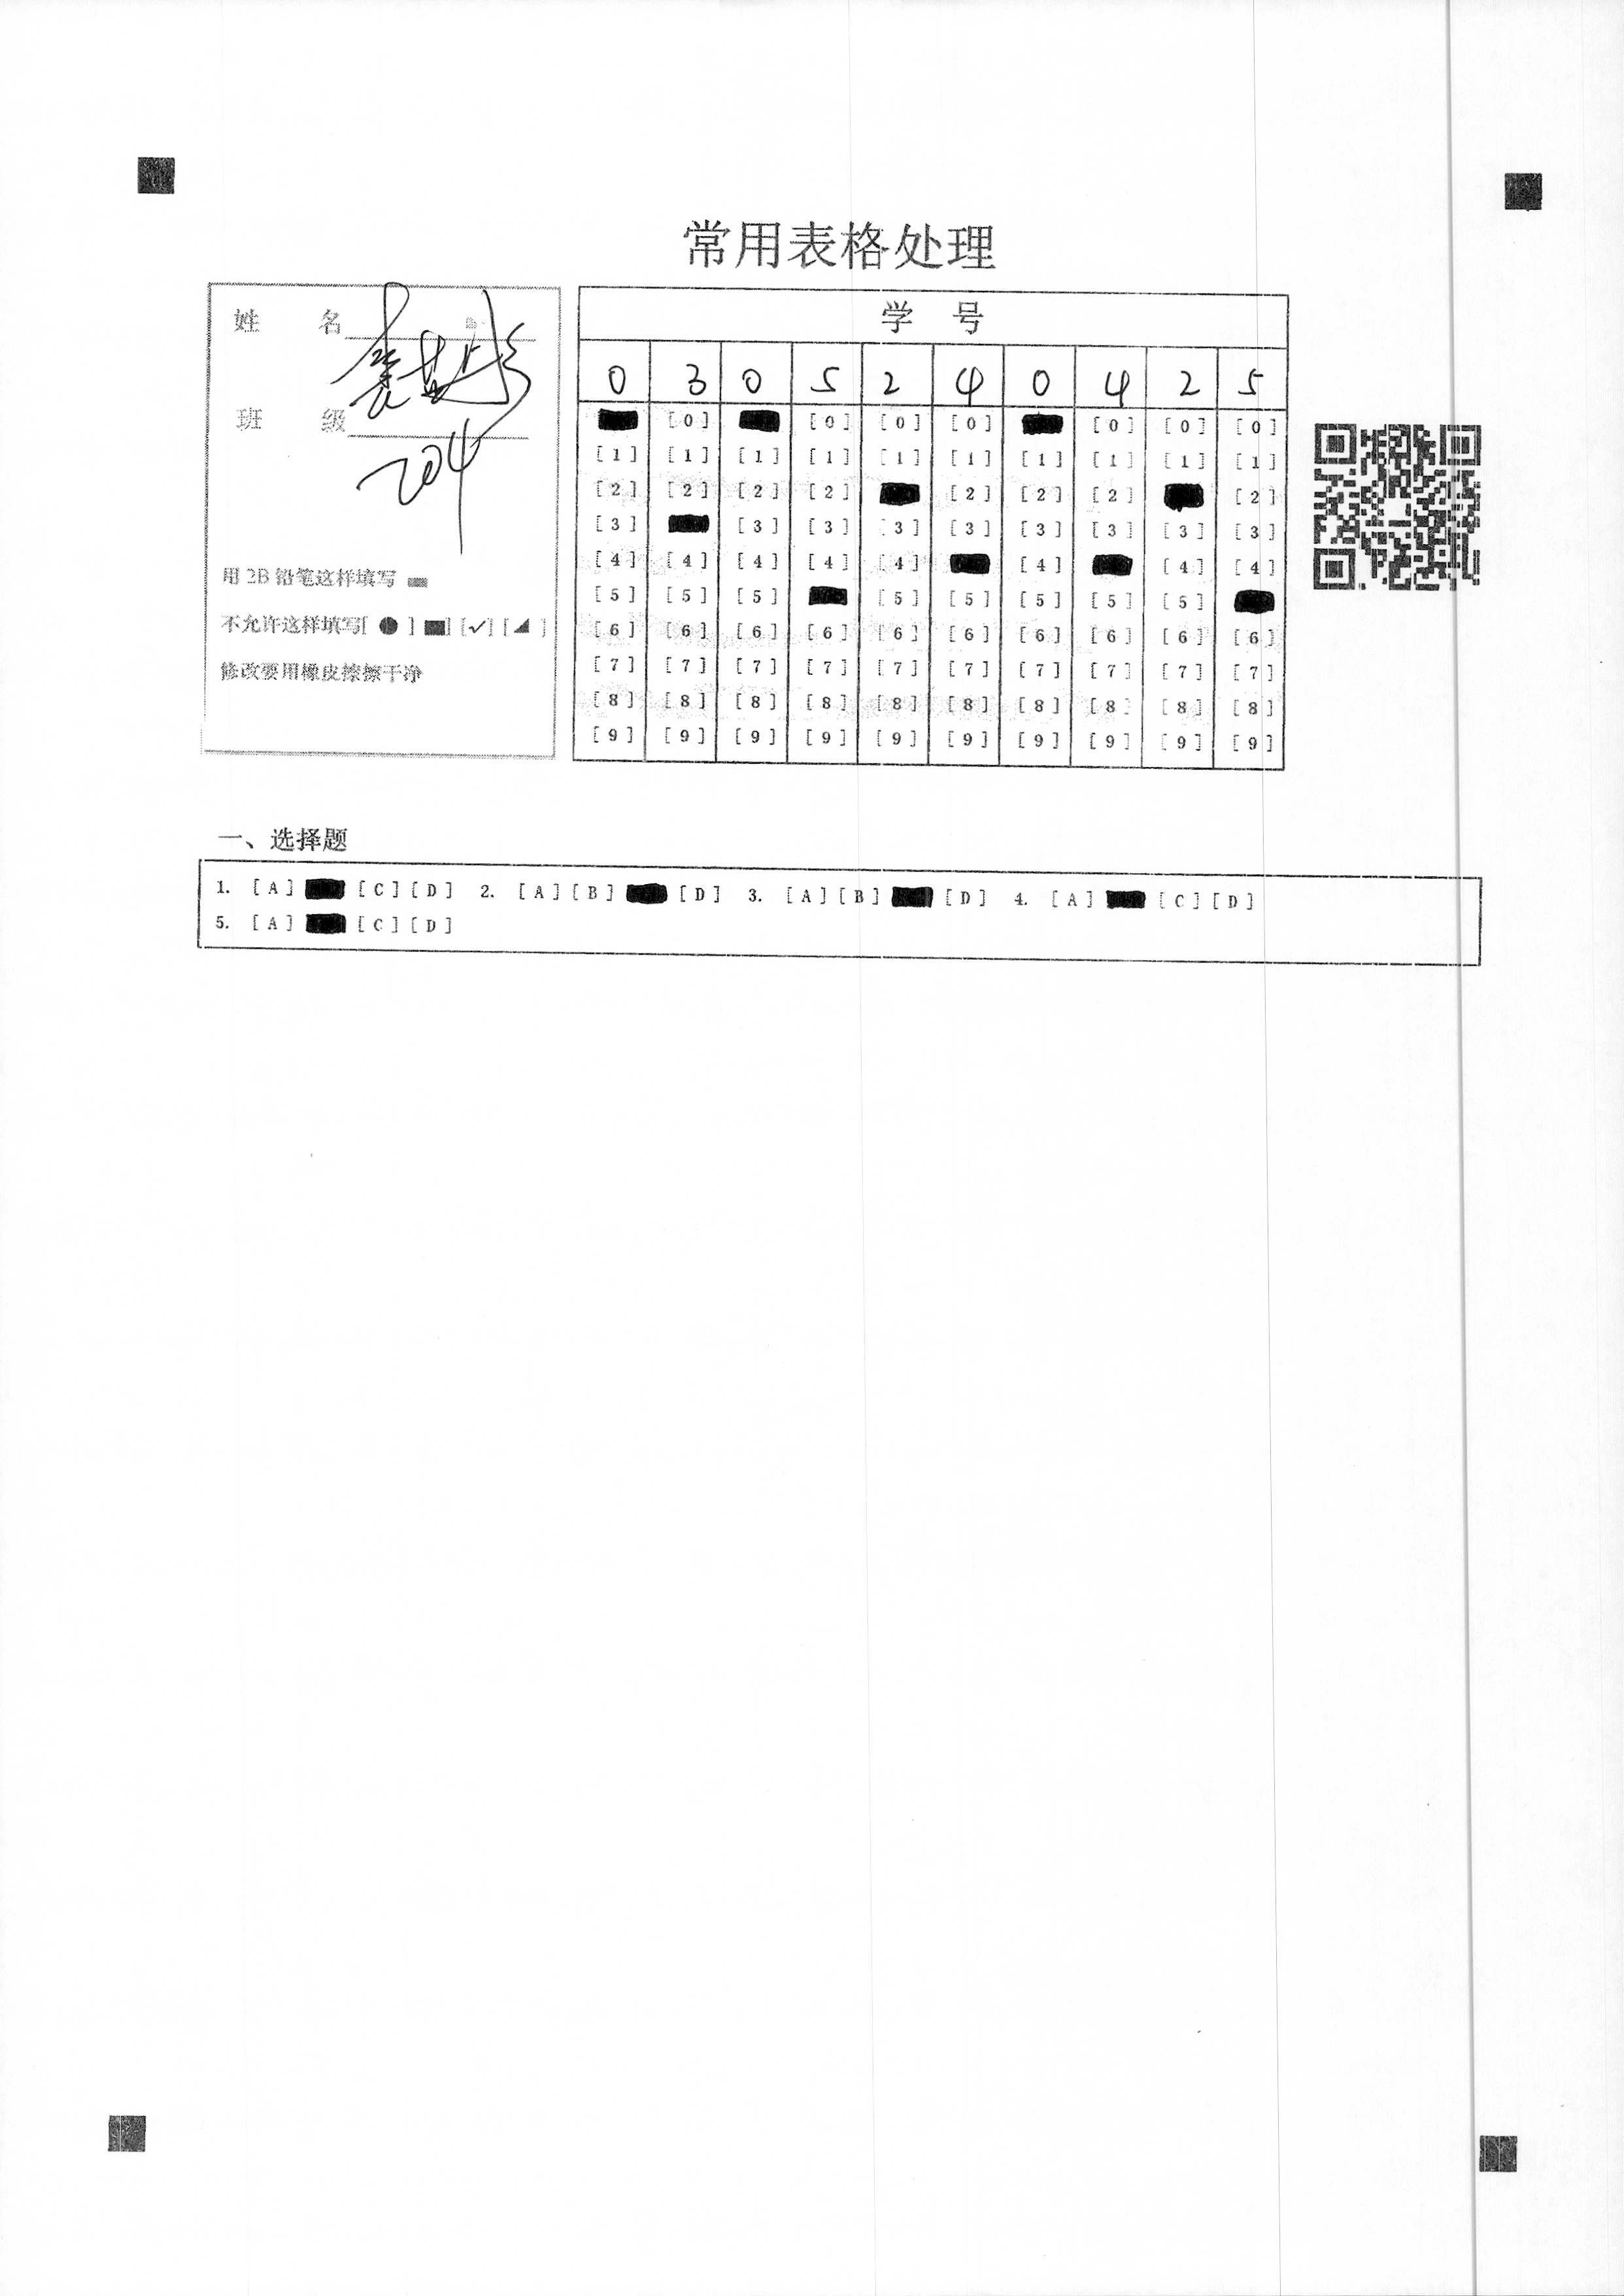 常用表格处理
姓 名
班 级 204
用 2B 铅笔这样填写
不允许这样填写[ ● ] [■] [✓] [◢ ]
修改要用橡皮擦擦干净
学 号
0 3 0 5 2 4 0 4 2 5
[0] [0] [0] [0] [0] [0] [0]
[1] [1] [1] [1] [1] [1] [1] [1] [1] [1]
[2] [2] [2] [2] [2] [2] [2] [2]
[3] [3] [3] [3] [3] [3] [3] [3] [3]
[4] [4] [4] [4] [4] [4] [4] [4]
[5] [5] [5] [5] [5] [5] [5] [5]
[6] [6] [6] [6] [6] [6] [6] [6] [6] [6]
[7] [7] [7] [7] [7] [7] [7] [7] [7] [7]
[8] [8] [8] [8] [8] [8] [8] [8] [8] [8]
[9] [9] [9] [9] [9] [9] [9] [9] [9] [9]
一、选择题
1. [A] [C] [D] 2. [A] [B] [D] 3. [A] [B] [D] 4. [A] [C] [D]
5. [A] [C] [D]